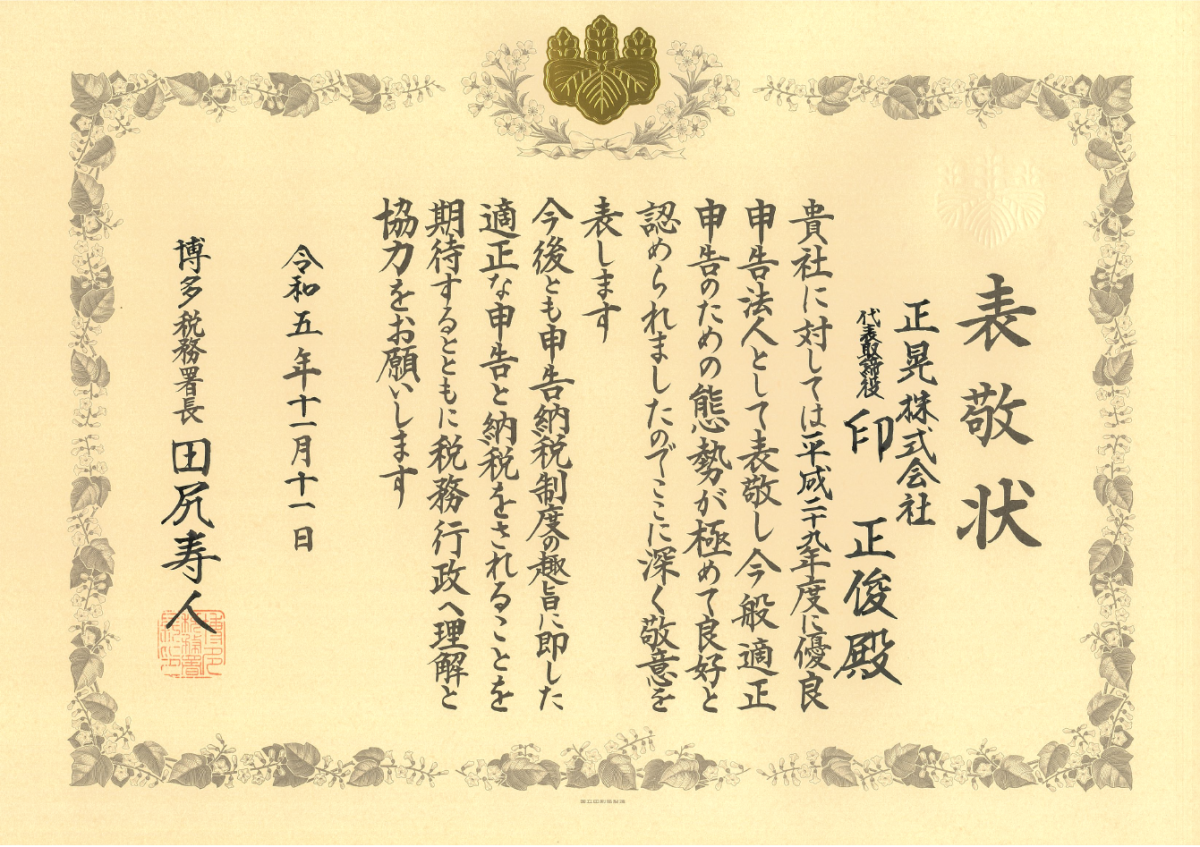 表敬状
正晃株式会社
代表取締役 印 正俊 殿
貴社に対しては平成二十九年度に優良
申告法人として表敬し今般適正
申告のための態勢が極めて良好と
認められましたのでここに深く敬意を
表します
今後とも申告納税制度の趣旨に即した
適正な申告と納税をされることを
期待するとともに税務行政へ理解と
協力をお願いします
令和五年十一月十一日
博多税務署長 田尻寿人